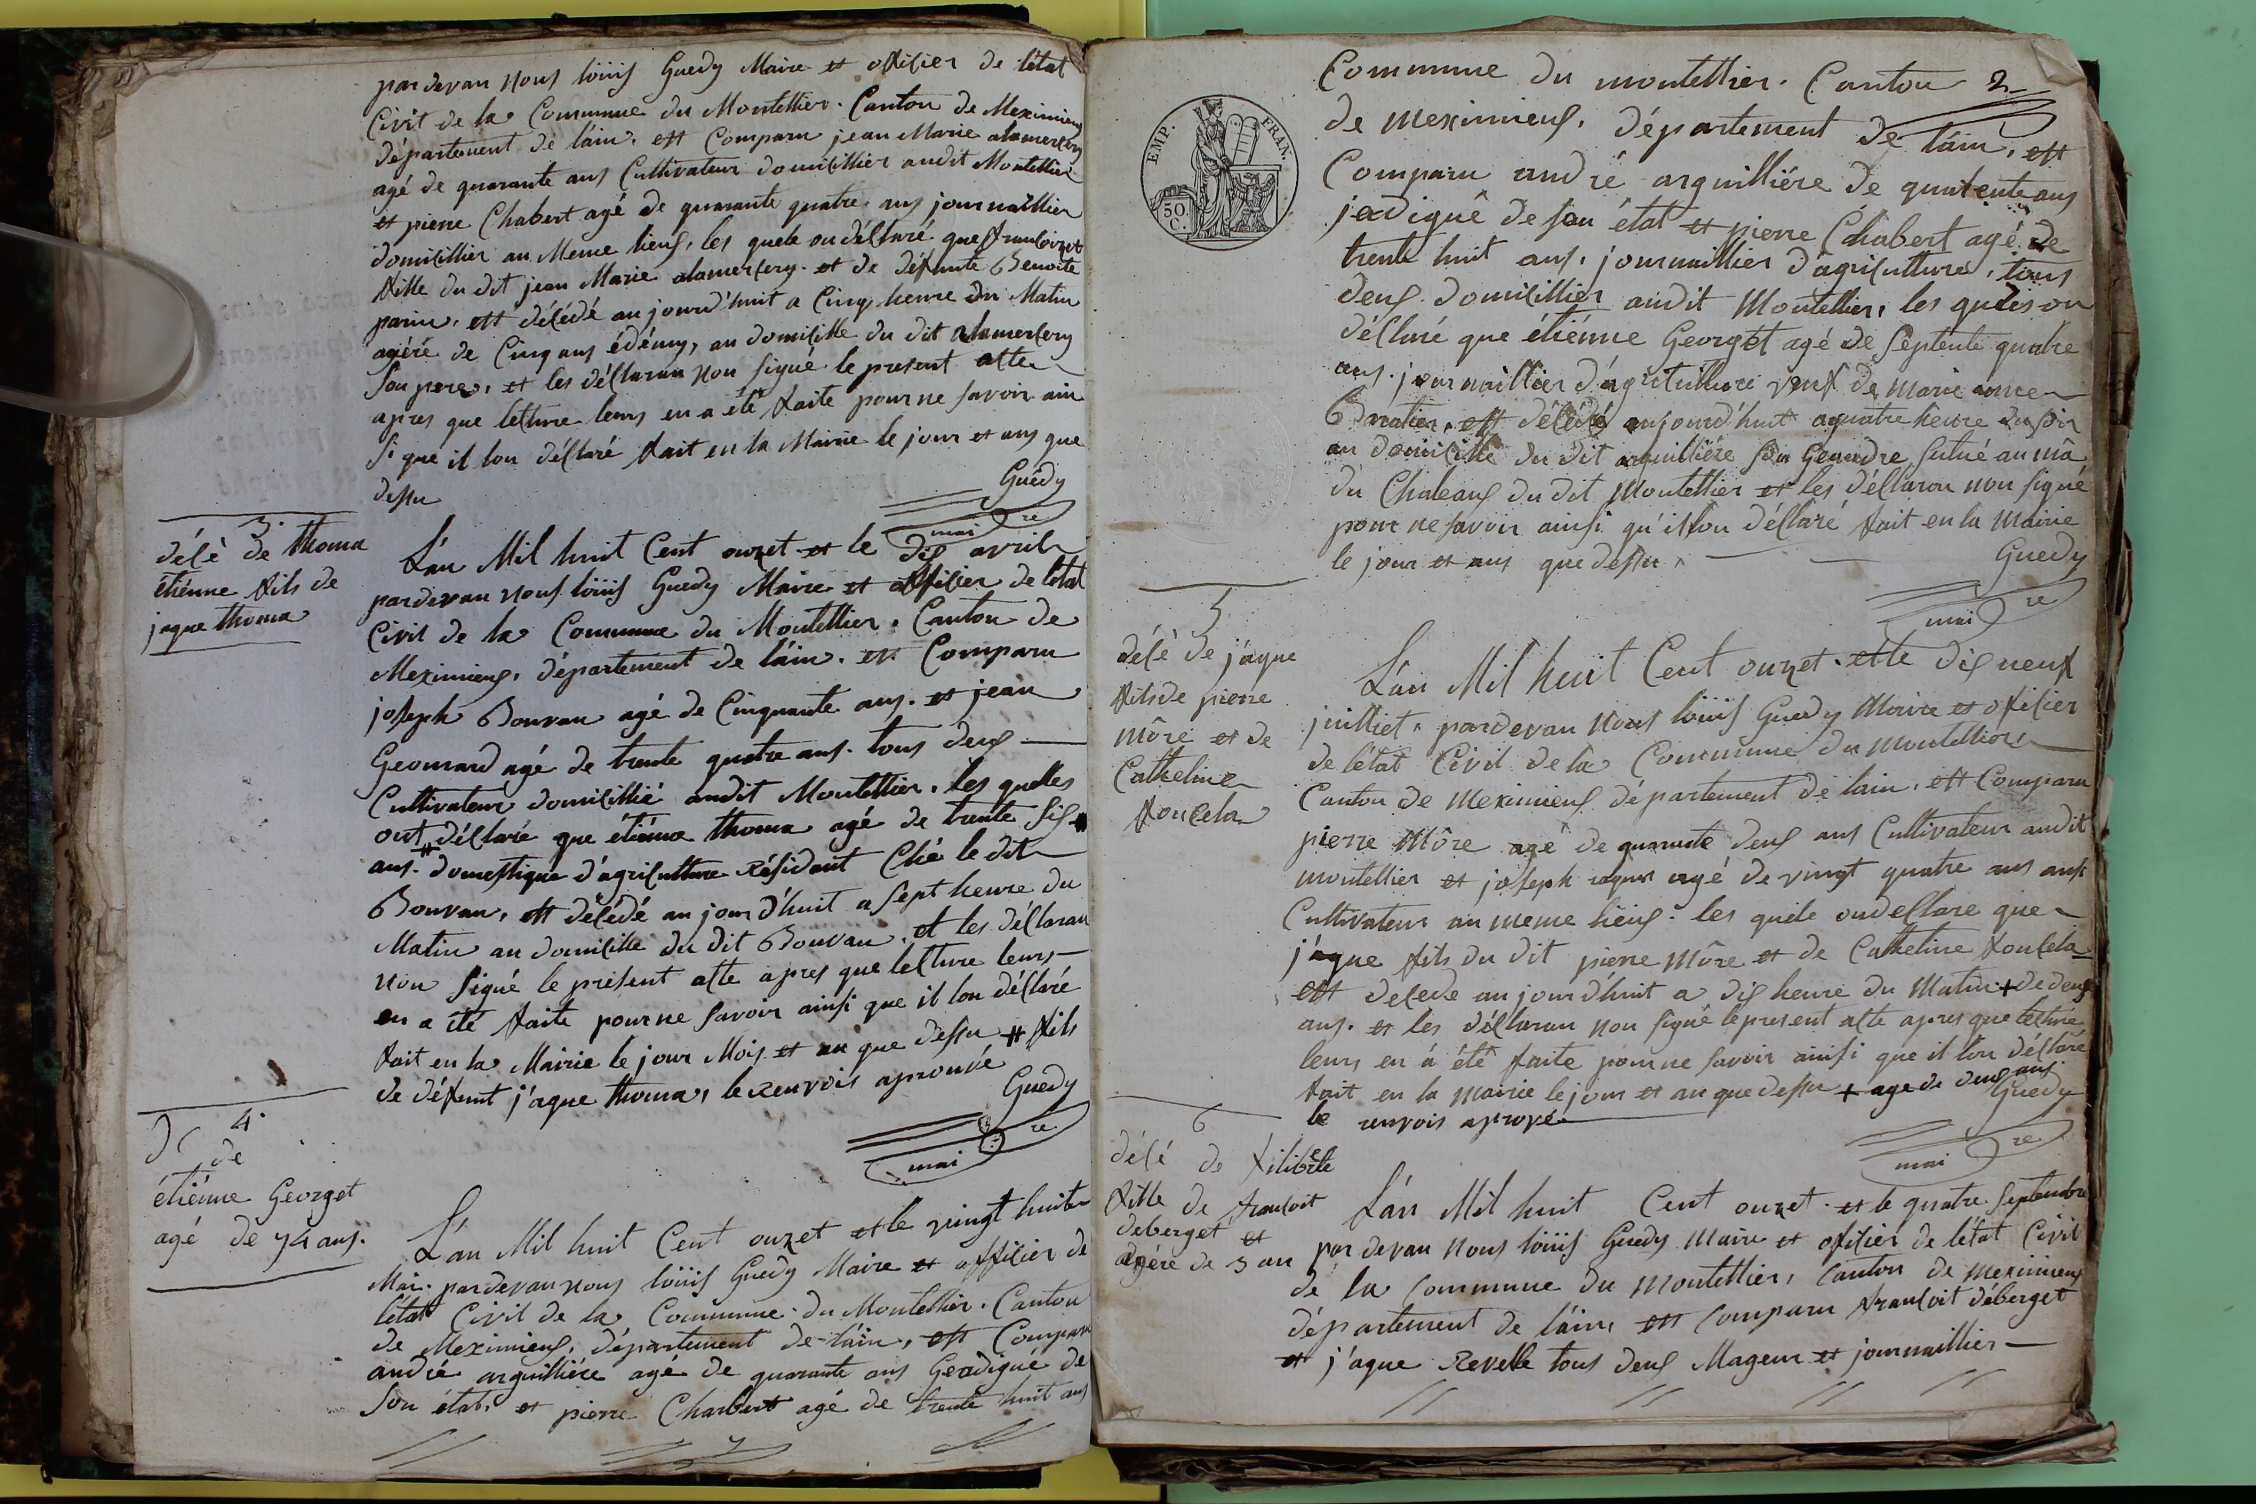 pardevan nous loüis Guedy Maire et offisier de l'état
Civit de la Commune du Montellier. Canton de Meximieux
département de l'ain. est Comparu jean Marie alamersery
agé de quarante ans Cultivateur domicillier audit Montellier
et pierre Chabert agé de quarante quatre ans journaillier
domicillier au Meme lieus, les quele on déclaré que
fille du dit jean Marie alamersery et de défunte Benoite
parin, est décédé au jourd'huit a Cinq heure du Matin
agéré de Cinq ans édémy, au domicille du dit alamersery
son pere, et les déclaran non signé le present atte
apres que lecture leurs en a été faite pour ne savoir ain
si que il lon déclaré fait en la Mairie le jour et ans que
dessu
Guedy
maire
3.
décè de thoma
étiénne fils de
jaque thoma
L'an Mil huit Cent ouzet et le dis avril
pardevan nous loüis Guedy Maire et offisier de l'état
Civil de la Commune du Montellier. Canton de
Meximieux, département de l'ain. est Comparu
joseph Bouvan agé de Cinquante ans. et jean
Geomard agé de trente quatre ans. tous deus
Cultivateur domicillié audit Montellier, les quelles
ont déclaré que étiénne thoma agé de trente sis #
ans. domestique d'agriculture résidant Ché le dit
Bouvan, est décédé au jour d'huit a sept heure du
Matin au domicille du dit Bouvan. et les déclaran
non signé le présent atte apres que lecture leurs
en a été faite pour ne savoir ainsi que il lon déclaré
fait en la Mairie le jour Mois et an que dessu # fils
de défunt j'aque thoma, le renvois aprouvé
Guedy
maire
4.
de
étiénne Georget
agé de 74 ans.
L'an Mil huit Cent ouzet et le vingt huit
Mai. pardevan nous loüis Guedy Maire et offisier de
l'état Civil de la Commune du Montellier. Canton
de Meximieux, département de l'ain, est Comparu
andré arguilliére agé de quarante ans Geadiqué de
son état, et pierre Chabert agé de trente huit ans
2
Commune du montellier. Canton
de meximieus, département de l'ain, est
Comparu andré arguilliére de quatente ans
jeadiqué de son état et pierre Chabert agé de
trente huit ans, journaillier d'agriculture, tous
deus domicillier audit Montellier, les qules on
déclaré que étiénne Georget agé de septente quatre
ans. journaillier d'agriculture veuf de marie
est décédé aujourd'huit a quatre heure du soir
au domicille du dit arguilliére son Geandre situé au mâ
du Chateaux du dit Montellier et les déclaron non signé
pour ne savoir ainsi qu'il lon déclaré fait en la Mairie
le jour et ans que dessu
Guedy
maire
EMP. FRAN.
50
C.
5
décè de j'aque
fils de pierre
môre et de
Catheline
foncela
L'an Mil huit Cent ouzet. et le dis neuf
juilliet, pardevan nous loüis Guedy Maire et offisier
de l'état Civil de la Commune du montellier
Canton de meximieus département de lain, est Comparu
pierre Môre agé de quarante deus ans Cultivateur audit
montellier et joseph agé de vingt quatre ans ausi
Cultivateur au meme lieus. les quele on déclare que
j'aque fils du dit pierre Môre et de Catheline foncela
est décédé au jourd'huit a dis heure du Matin + de deux
ans. et les déclaran non signé le present atte apres que lecture
leurs en á été faite pour ne savoir ainsi que il lon déclaré
fait en la Mairie le jour et an que dessu + age de deux ans
le renvois aprové
Guedy
maire
6
décé de filiberte
fille de fransoit
deberget et
agére de 3 an
L'an Mil huit Cent ouzet. et le quatre Septembre
par devan nous loüis Guedy Maire et offisier de l'état Civil
de la Commune du montellier, Canton de meximieux
département de l'ain, est Comparu fransoit déberget
et j'aque Revelle tous deus Mageur et journaillier